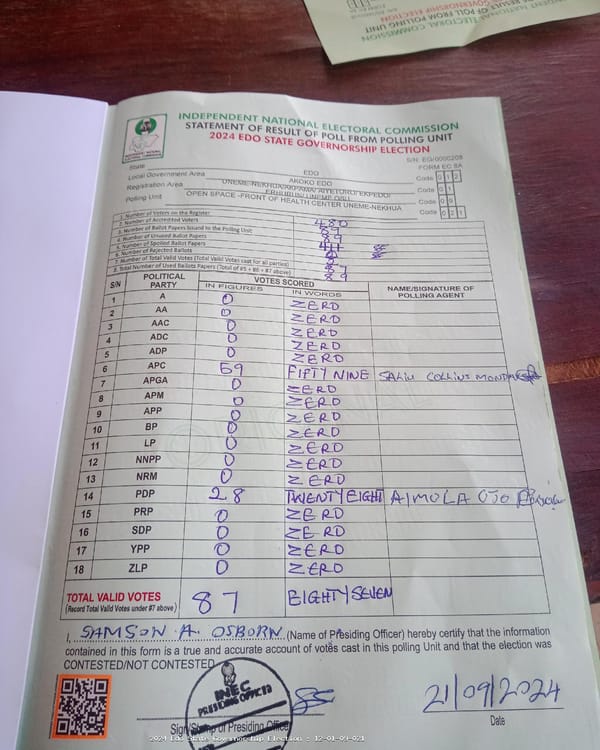 INDEPENDENT NATIONAL ELECTORAL COMMISSION
STATEMENT OF RESULT OF POLL FROM POLLING UNIT
2024 EDO STATE GOVERNORSHIP ELECTION
S/N: EG/0000208
FORM EC 8A
State EDO Code 0 1 2
Local Government Area AKOKO EDO Code 0 1
Registration Area UNEME-NEKHUA/AKPAMA/ Code 0 9
Polling Unit OPEN SPACE -FRONT OF HEALTH CENTER UNEME-NEKHUA Code 0 2 1
1. Number of Voters on the Register 480
2. Number of Accredited Voters
3. Number of Ballot Papers Issued to the Polling Unit
4. Number of Unused Ballot Papers
5. Number of Spoiled Ballot Papers
6. Number of Rejected Ballots
7. Number of Total Valid Votes (Total Valid Votes cast for all parties) 87
8. Total Number of Used Ballots Papers (Total of #5 + #6 + #7 above)
S/N POLITICAL PARTY VOTES SCORED NAME/SIGNATURE OF POLLING AGENT
IN FIGURES IN WORDS
1 A 0 ZERO
2 AA 0 ZERO
3 AAC 0 ZERO
4 ADC 0 ZERO
5 ADP 0 ZERO
6 APC 59 FIFTY NINE SALIU COLLINS MONDAY
7 APGA 0 ZERO
8 APM 0 ZERO
9 APP 0 ZERO
10 BP 0 ZERO
11 LP 0 ZERO
12 NNPP 0 ZERO
13 NRM 0 ZERO
14 PDP 28 TWENTY EIGHT AIMOLA OJO
15 PRP 0 ZERO
16 SDP 0 ZERO
17 YPP 0 ZERO
18 ZLP 0 ZERO
TOTAL VALID VOTES 87 EIGHTY SEVEN
(Record Total Valid Votes under #7 above)
I, SAMSON A. OSBORN (Name of Presiding Officer) hereby certify that the information
contained in this form is a true and accurate account of votes cast in this polling Unit and that the election was
CONTESTED/NOT CONTESTED
INEC
PRESIDING OFFICER
21/09/2024
Sign/Stamp of Presiding Officer Date
2024 Edo State Governorship Election : 12-01-09-021